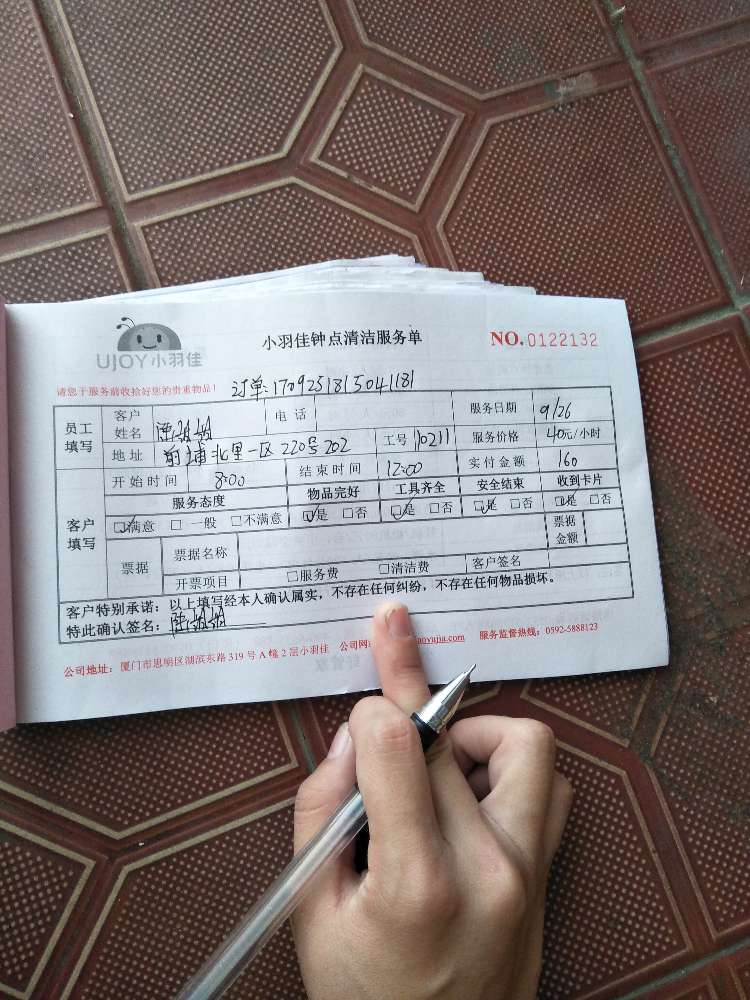 UJOY小羽佳
小羽佳钟点清洁服务单
NO.0122132
请您于服务前收拾好您的贵重物品!
订单:1709251815041181
员工填写 客户姓名 电话 服务日期 9/26
地址 前埔北里一区220号202 工号 10211 服务价格 40元/小时
客户填写 开始时间 8:00 结束时间 12:00 实付金额 160
服务态度 物品完好 工具齐全 安全结束 收到卡片
☑满意 □一般 □不满意 ☑是 □否 ☑是 □否 ☑是 □否 ☑是 □否
票据 票据名称 票据金额
开票项目 □服务费 □清洁费 客户签名
客户特别承诺:以上填写经本人确认属实,不存在任何纠纷,不存在任何物品损坏。
特此确认签名:
公司地址:厦门市思明区湖滨东路319号A幢2层小羽佳 公司网 aoyujia.com 服务监督热线:0592-5888123